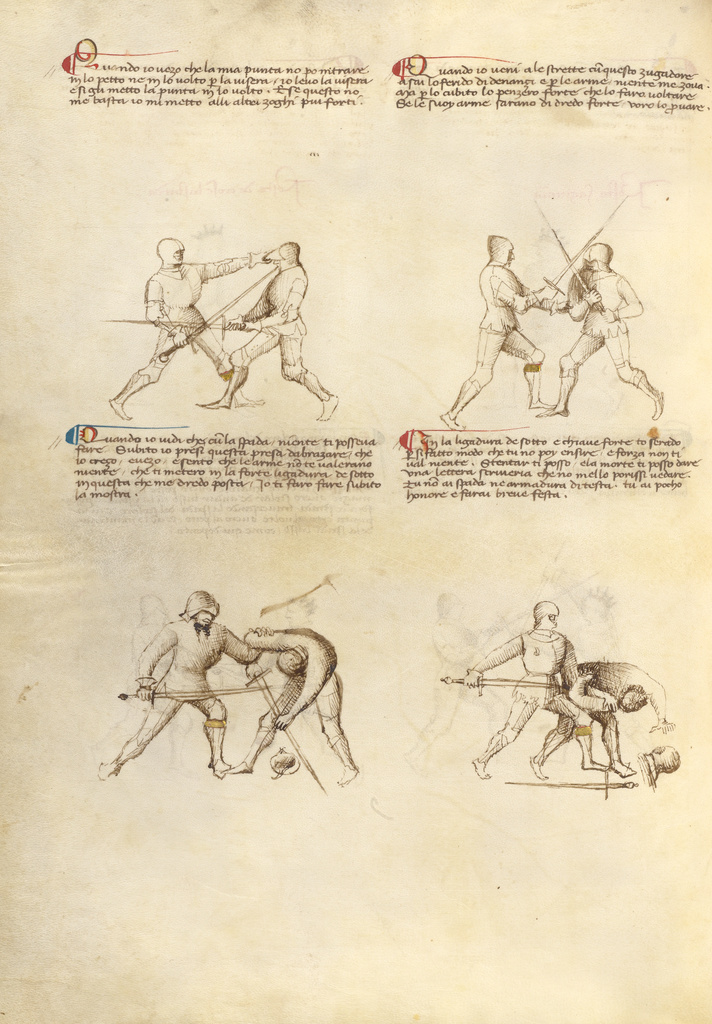 Quando io vezo che la mia punta no po intrare
in lo petto ne in lo volto p la visera, io levo la visera
e si gli metto la punta in lo volto. E se questo no
me basta io mi metto alli altri zoghi piu forti.
Quando io veni ale strette cũ questo zugadore
lo ferido denanci e p le arme niente me zova
p lo cubito lo penzero forte che lo faro voltare
Se le suoy arme sarano di dredo forte, voio lo pvare.
Quando io vidi che cũ la spada niente ti posseva
fare. Subito io presi questa presa dabrazare, che
io crezo, e vezo, e sento che le arme nō te valerano
niente, che ti metero in la forte ligadura de sotto
in questa che me dredo posta, Io ti faro fare subito
la mostra.
In la ligadura de sotto e chiave forte to serado
p sifatto modo che tu no poy ensire, e forza non ti
val niente. Stentar ti posso, e la morte ti posso dare
Una lettera scriveria che no me llo porissi vedare.
Tu nō ai spada ne armadura di testa, tu ai pocho
honore e farai breve festa.